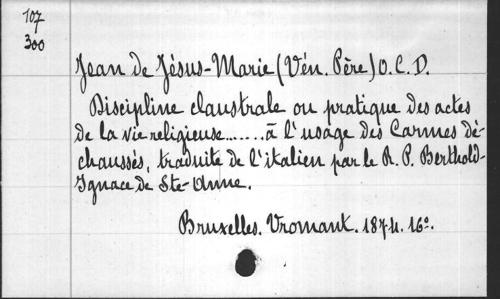 107
300
Jean de Jésus-Marie (Vén. Père) O.C.D.
Discipline claustrale ou pratique des actes
de la vie religieuse.......à l'usage des Carmes dé-
chaussés, traduite de l'italien par le R. P. Berthold-
Ignace de Ste-Anne.
Bruxelles. Vromant. 1874. 16º.